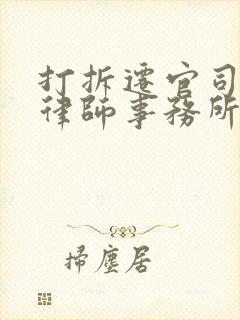 打拆遷官司
律師事務所
掃塵居